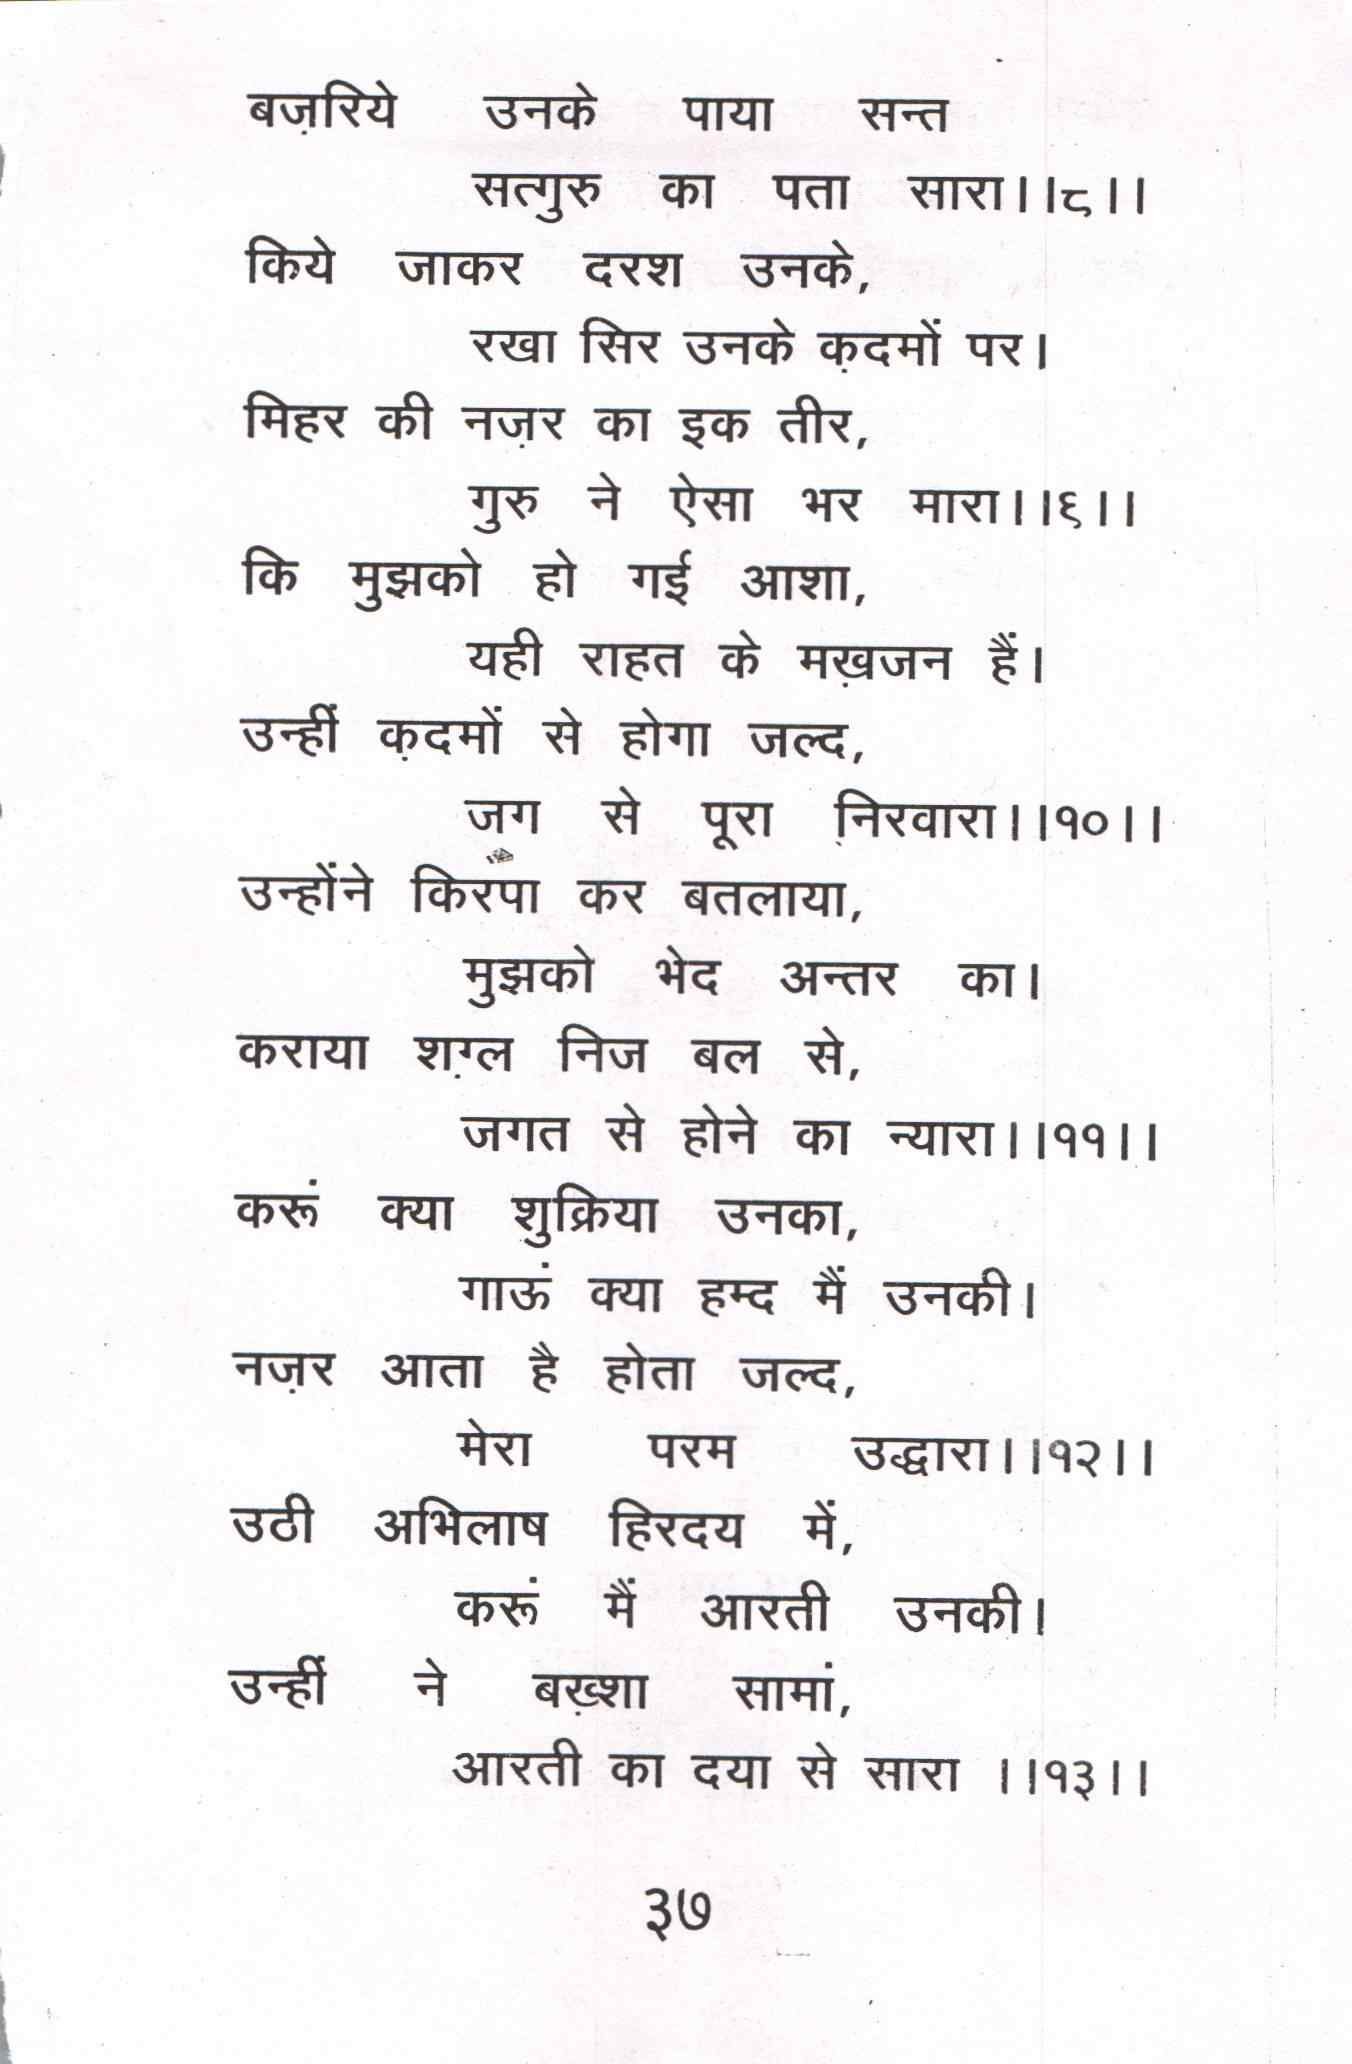 बज़रिये उनके पाया सन्त
सत्गुरु का पता सारा।।८।।
किये जाकर दरश उनके,
रखा सिर उनके क़दमों पर।
मिहर की नज़र का इक तीर,
गुरु ने ऐसा भर मारा।।९।।
कि मुझको हो गई आशा,
यही राहत के मख़जन हैं।
उन्हीं क़दमों से होगा जल्द,
जग से पूरा ऩिरवारा।।१०।।
उन्होंने किरपा कर बतलाया,
मुझको भेद अन्तर का।
कराया शग़्ल निज बल से,
जगत से होने का न्यारा।।११।।
करूं क्या शुक्रिया उनका,
गाऊं क्या हम्द मैं उनकी।
नज़र आता है होता जल्द,
मेरा परम उद्धारा।।१२।।
उठी अभिलाष हिरदय में,
करूं मैं आरती उनकी।
उन्हीं ने बख़्शा सामां,
आरती का दया से सारा ।।१३।।
३७